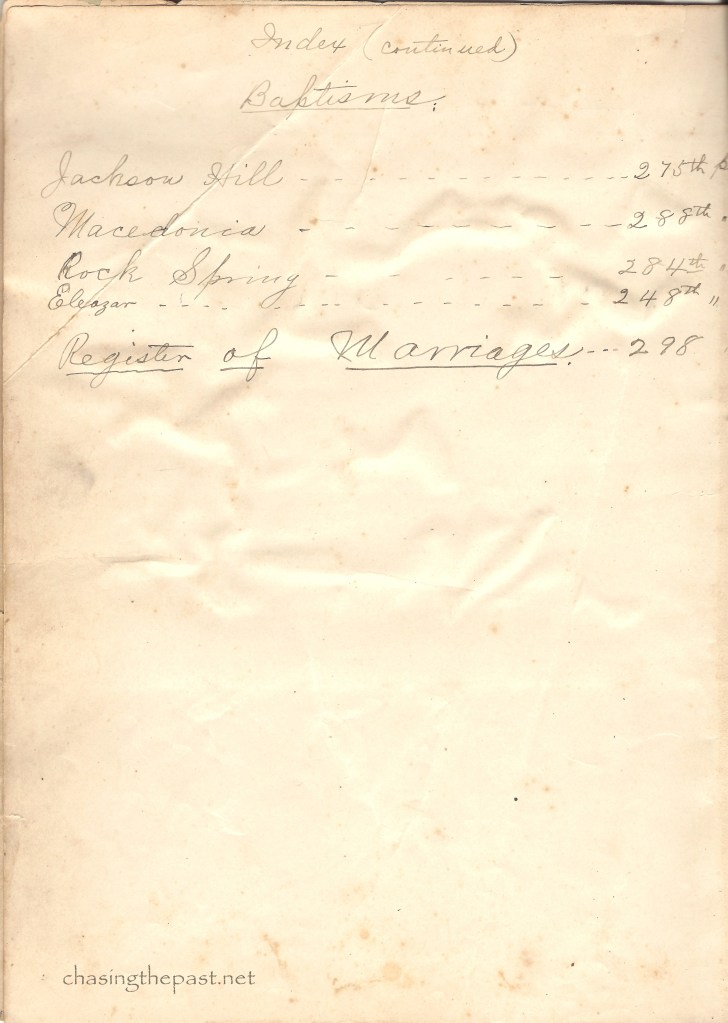 Index (continued)
Baptisms.
Jackson Hill - - - - - - - - - - - - 275th p
Macedonia - - - - - - - - - - - 288th "
Rock Spring - - - - - - - - 284th "
Eleazar - - - - - - - - - - - - - 248th "
Register of Marriages. --- 298
chasingthepast.net